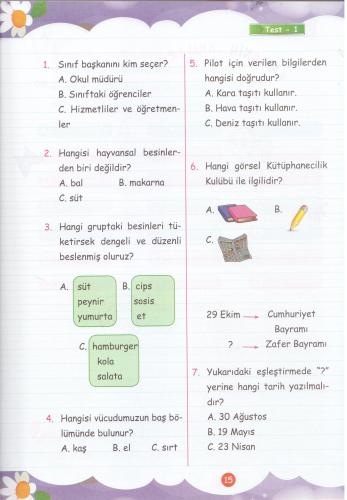 Test - 1
1. Sınıf başkanını kim seçer?
A. Okul müdürü
B. Sınıftaki öğrenciler
C. Hizmetliler ve öğretmen-
ler
2. Hangisi hayvansal besinler-
den biri değildir?
A. bal B. makarna
C. süt
3. Hangi gruptaki besinleri tü-
ketirsek dengeli ve düzenli
beslenmiş oluruz?
A. süt
peynir
yumurta
B. cips
sosis
et
C. hamburger
kola
salata
4. Hangisi vücudumuzun baş bö-
lümünde bulunur?
A. kaş B. el C. sırt
5. Pilot için verilen bilgilerden
hangisi doğrudur?
A. Kara taşıtı kullanır.
B. Hava taşıtı kullanır.
C. Deniz taşıtı kullanır.
6. Hangi görsel Kütüphanecilik
Kulübü ile ilgilidir?
A. B.
C.
29 Ekim → Cumhuriyet
Bayramı
? → Zafer Bayramı
7. Yukarıdaki eşleştirmede "?"
yerine hangi tarih yazılmalı-
dır?
A. 30 Ağustos
B. 19 Mayıs
C. 23 Nisan
15